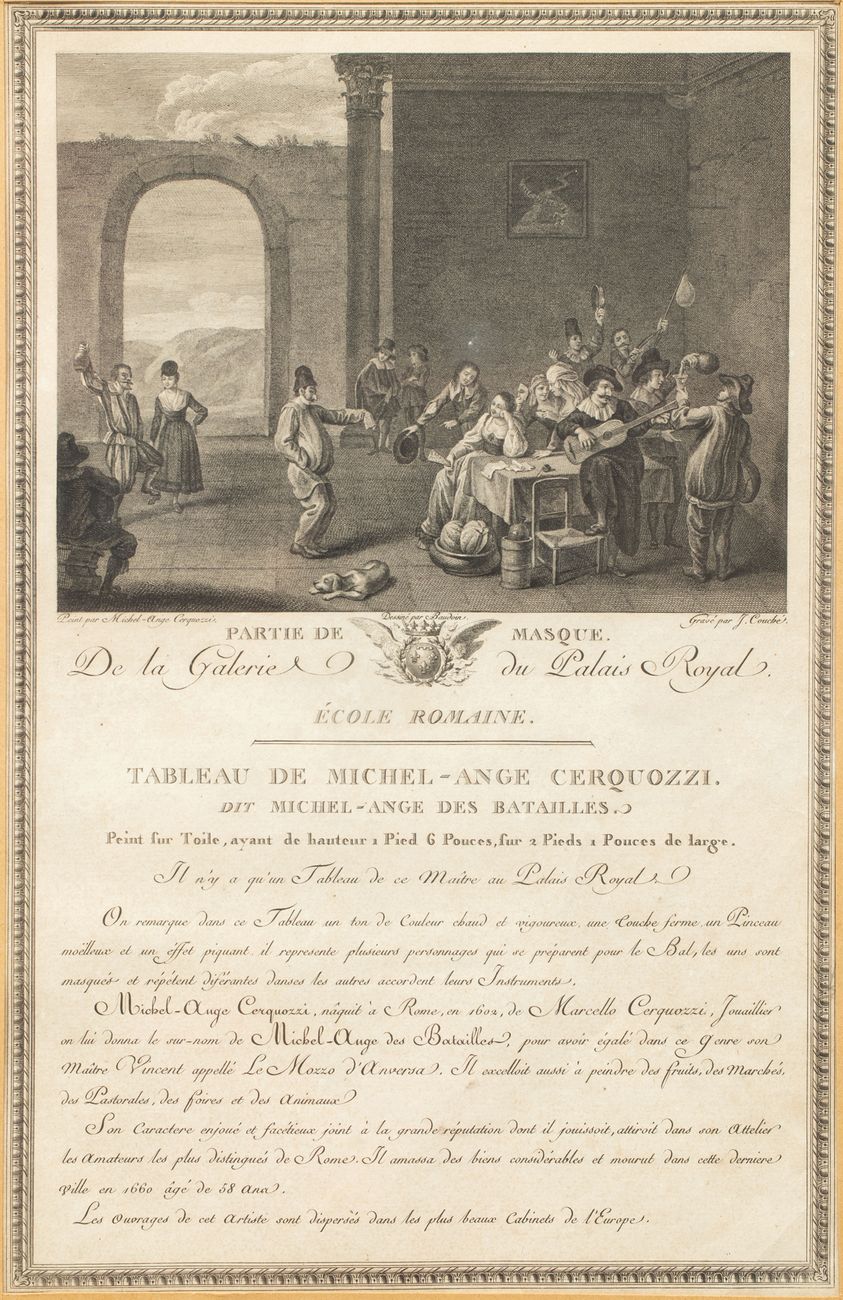 Peint par Michel-Ange Cerquozzi.
Dessiné par Baudoin.
Gravé par J. Couché.
PARTIE DE MASQUE.
De la Galerie du Palais Royal.
ÉCOLE ROMAINE.
TABLEAU DE MICHEL-ANGE CERQUOZZI.
DIT MICHEL-ANGE DES BATAILLES.
Peint sur Toile, ayant de hauteur 1 Pied 6 Pouces, sur 2 Pieds 1 Pouces de large.
Il n'y a qu'un Tableau de ce Maître au Palais Royal.
On remarque dans ce Tableau un ton de Couleur chaud et vigoureux, une Touche ferme, un Pinceau
moëlleux et un éffet piquant. il represente plusieurs personnages qui se préparent pour le Bal, les uns sont
masqués et répétent diférantes danses les autres accordent leurs Instruments.
Michel-Ange Cerquozzi, nâquit à Rome, en 1602, de Marcello Cerquozzi, Jouaillier
on lui donna le sur-nom de Michel-Ange des Batailles, pour avoir égalé dans ce genre son
Maître Vincent appellé Le Mozzo d'Anversa. Il excelloit aussi à peindre des fruits, des Marchés,
des Pastorales, des foires et des Animaux
Son Caractere enjoué et facétieux joint à la grande réputation dont il jouissoit, attiroit dans son Attelier
les Amateurs les plus distingués de Rome. Il amassa des biens considérables et mourut dans cette derniere
Ville en 1660 âgé de 58 Ans.
Les Ouvrages de cet Artiste sont disperses dans les plus beaux Cabinets de l'Europe.